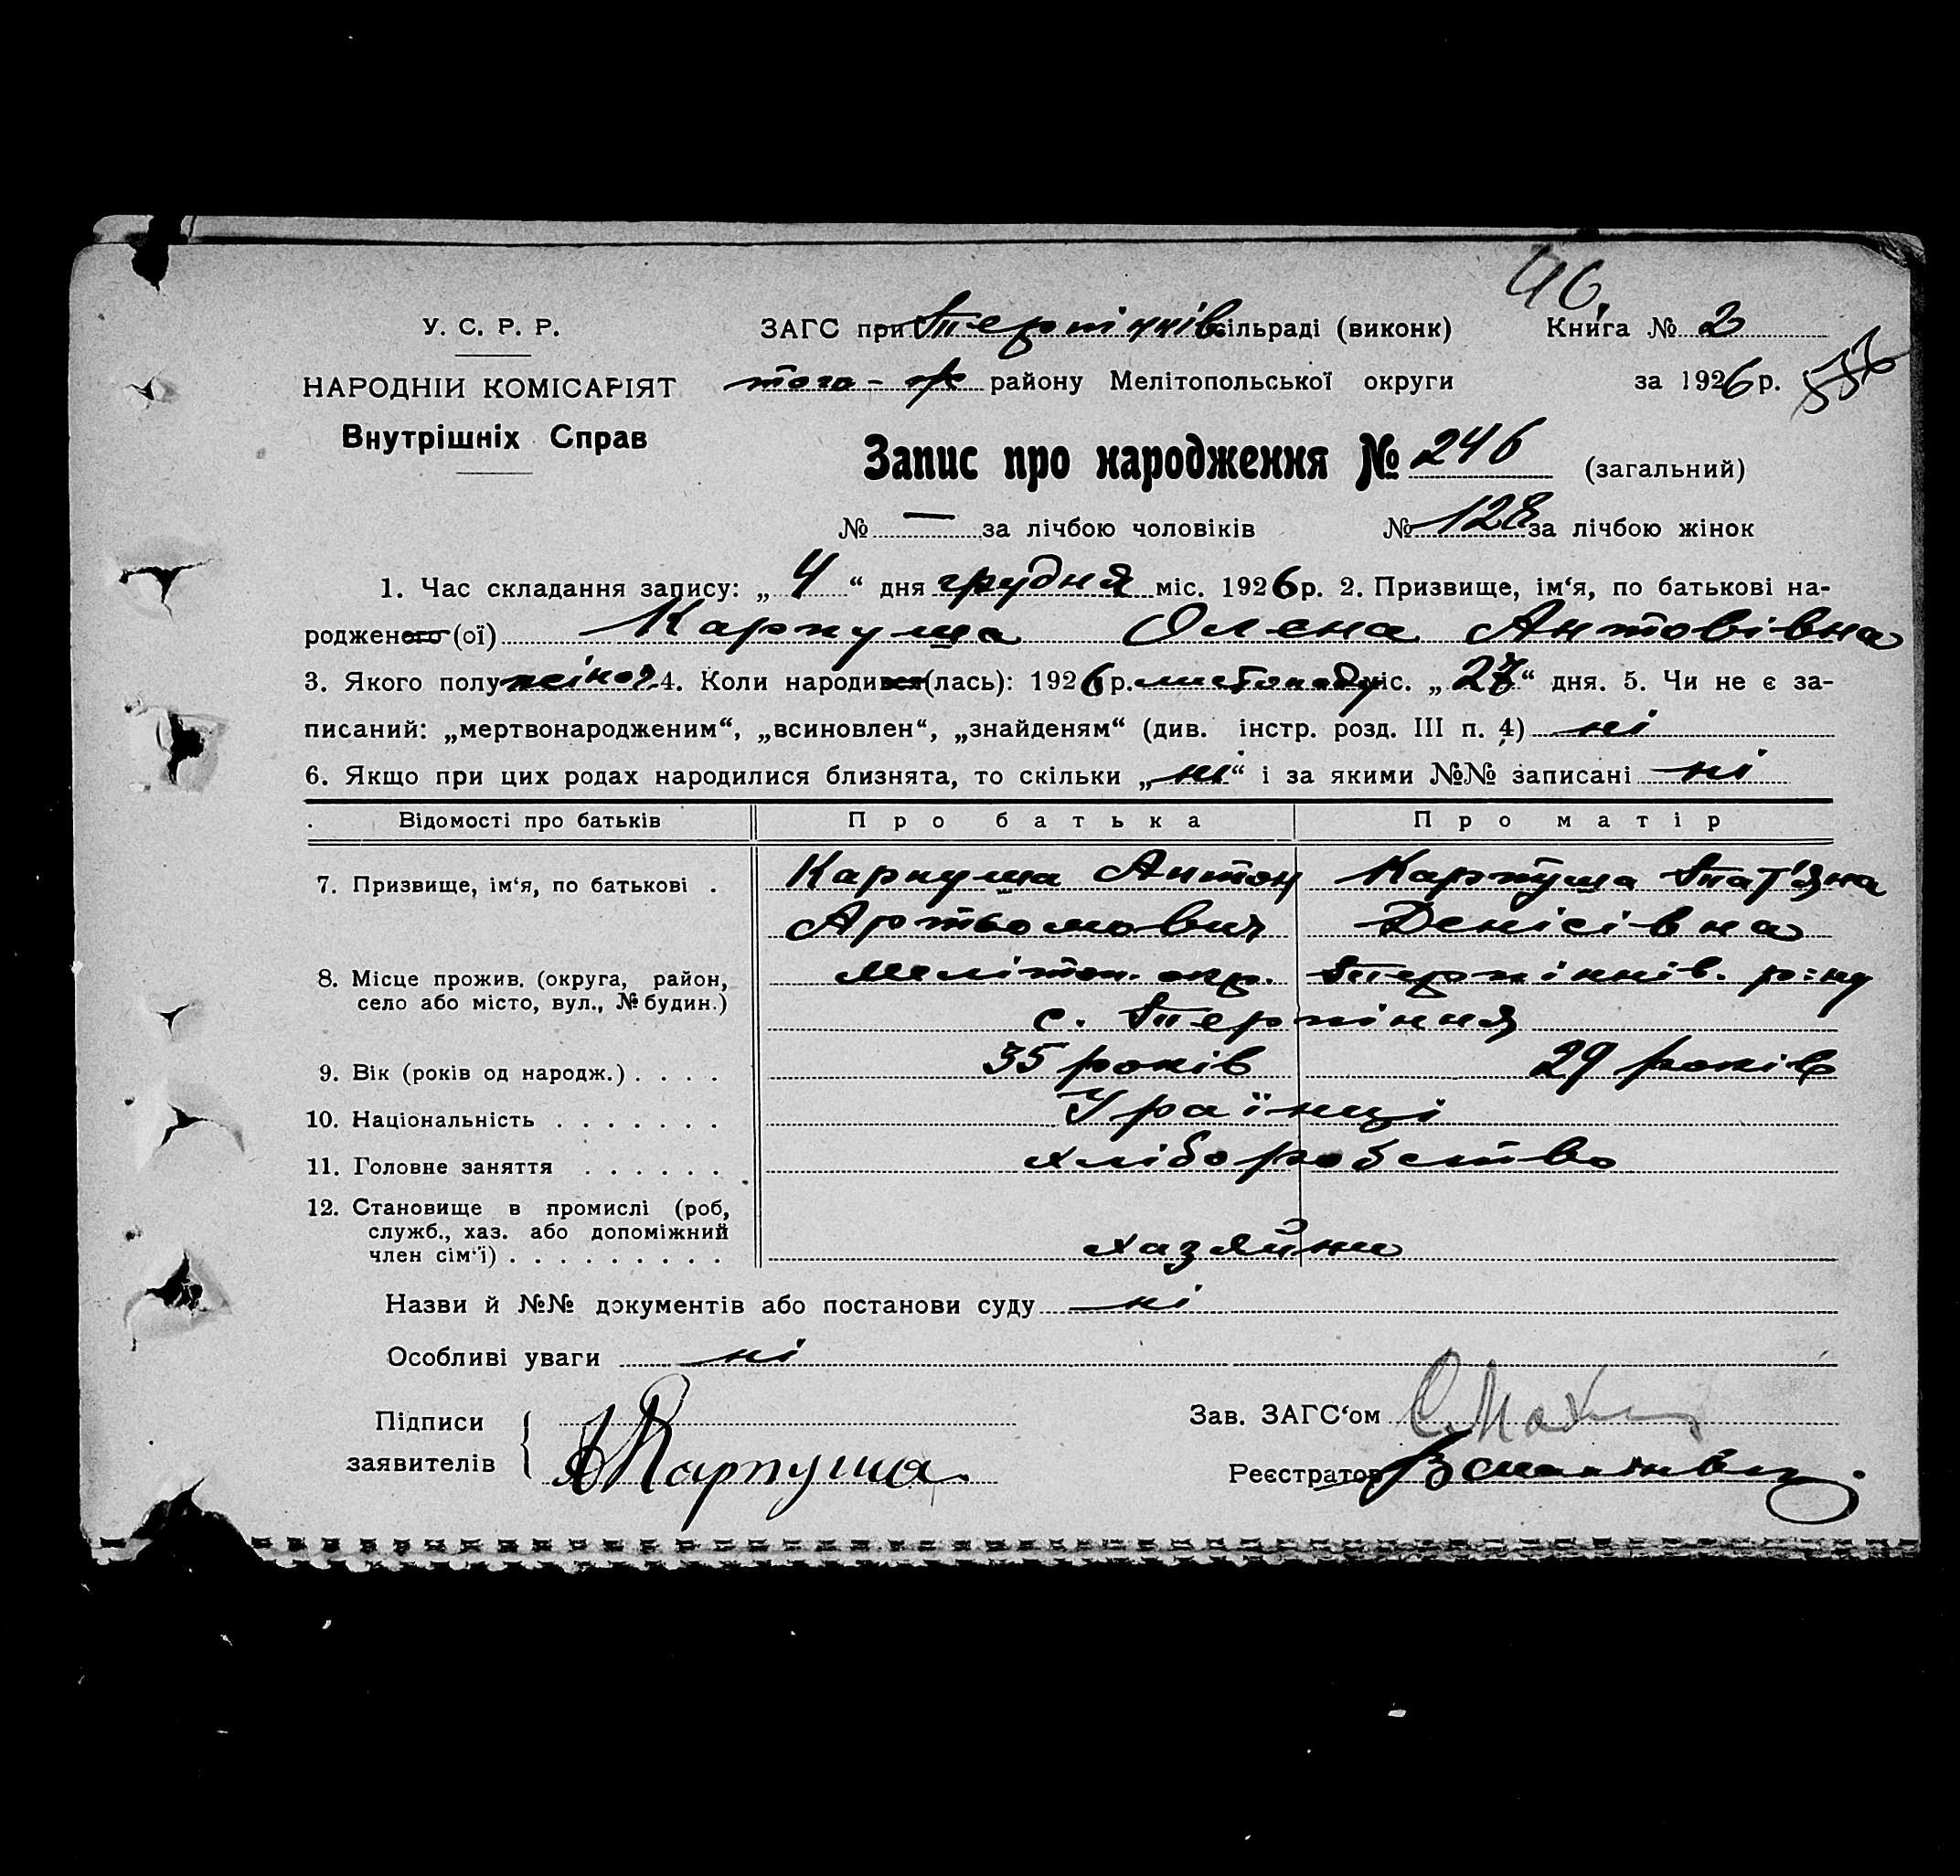 46.
У. С. Р. Р. ЗАГС при Терпіннів. сільраді (виконк) Книга № 2
НАРОДНІЙ КОМІСАРІЯТ того-ж району Мелітопольської округи за 1926 р.
Внутрішніх Справ
Запис про народження № 246 (загальний)
№ — за лічбою чоловіків № 128 за лічбою жінок
1. Час складання запису: „4“ дня грудня міс. 1926 р. 2. Призвище, ім‘я, по батькові на-
родженого (ої) Карпуша Олена Антовівна
3. Якого полу жіноч. 4. Коли народився (лась): 1926 р. листопаду міс. „27“ дня. 5. Чи не є за-
писаний: „мертвонародженим“, „всиновлен“, „знайденям“ (див. інстр. розд. III п. 4) ні
6. Якщо при цих родах народилися близнята, то скільки „ні“ і за якими №№ записані ні
Відомості про батьків Про батька Про матір
7. Призвище, ім‘я, по батькові . Карпуша Антон Карпуша Тат'яна
Артьомович Денісівна
8. Місце прожив. (округа, район, Мелітоп. окр. Терпіннів. р:ну
село або місто, вул., № будин.)
с. Терпіння
9. Вік (років од народж.) . . . . 35 років 29 років
10. Національність . . . . . . . Украінці
11. Головне заняття . . . . . . хліборобство
12. Становище в промислі (роб,
служб., хаз. або допоміжний
член сім‘ї) . . . . . . . . . хазяйни
Назви й №№ документів або постанови суду ні
Особливі уваги ні
Підписи Зав. ЗАГС‘ом
заявителів А Карпуша. Реєстратор